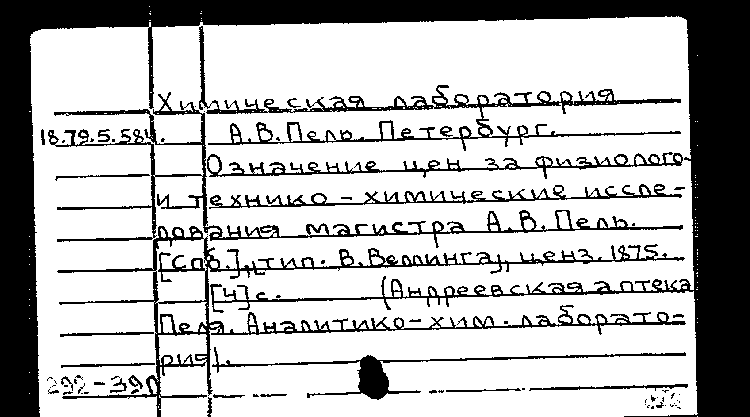 Химическая лаборатория
18.79.5.584. А.В.Пель. Петербург.
Означение цен за физиолого-
и технико-химические иссле-
дования магистра А.В.Пель.
[Спб.], тип. В.Веллинга, ценз. 1875.
[4] с. (Андреевская аптека
Пеля. Аналитико-хим. лаборато-
рия).
292-390